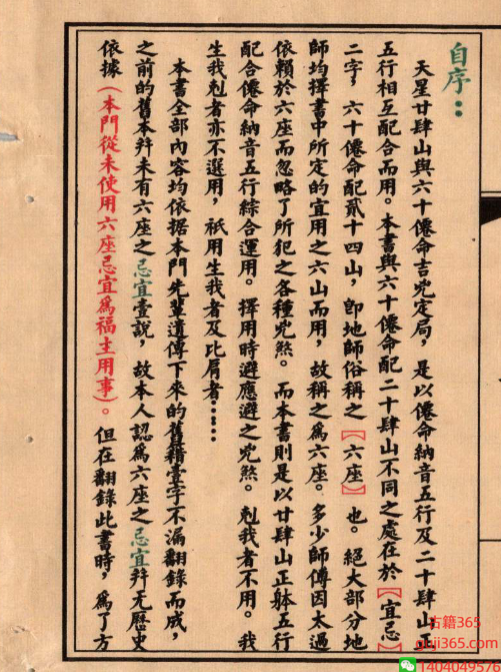 自序：
天星廿肆山與六十僊命吉兇定局，是以僊命納音五行及二十肆山正
五行相互配合而用。本書與六十僊命配二十肆山不同之處在於【宜忌】
二字，六十僊命配貳十四山，卽地師俗稱之【六座】也。絕大部分地
師均擇書中所定的宜用之六山而用，故稱之爲六座。多少師傅因太過
依賴於六座而忽略了所犯之各種兇煞。而本書則是以廿肆山正躰五行
配合僊命納音五行綜合運用。擇用時避應避之兇煞。剋我者不用。我
生我剋者亦不選用，祇用生我者及比肩者……
本書全部內容均依据本門先輩遺傳下來的舊籍壹字不漏翻錄而成，
之前的舊本幷未有六座之忌宜壹說，故本人認爲六座之忌宜幷无歷史
依據（本門從未使用六座忌宜爲福主用事）。但在翻錄此書時，爲了方
古籍365
guji365.com
1404049576